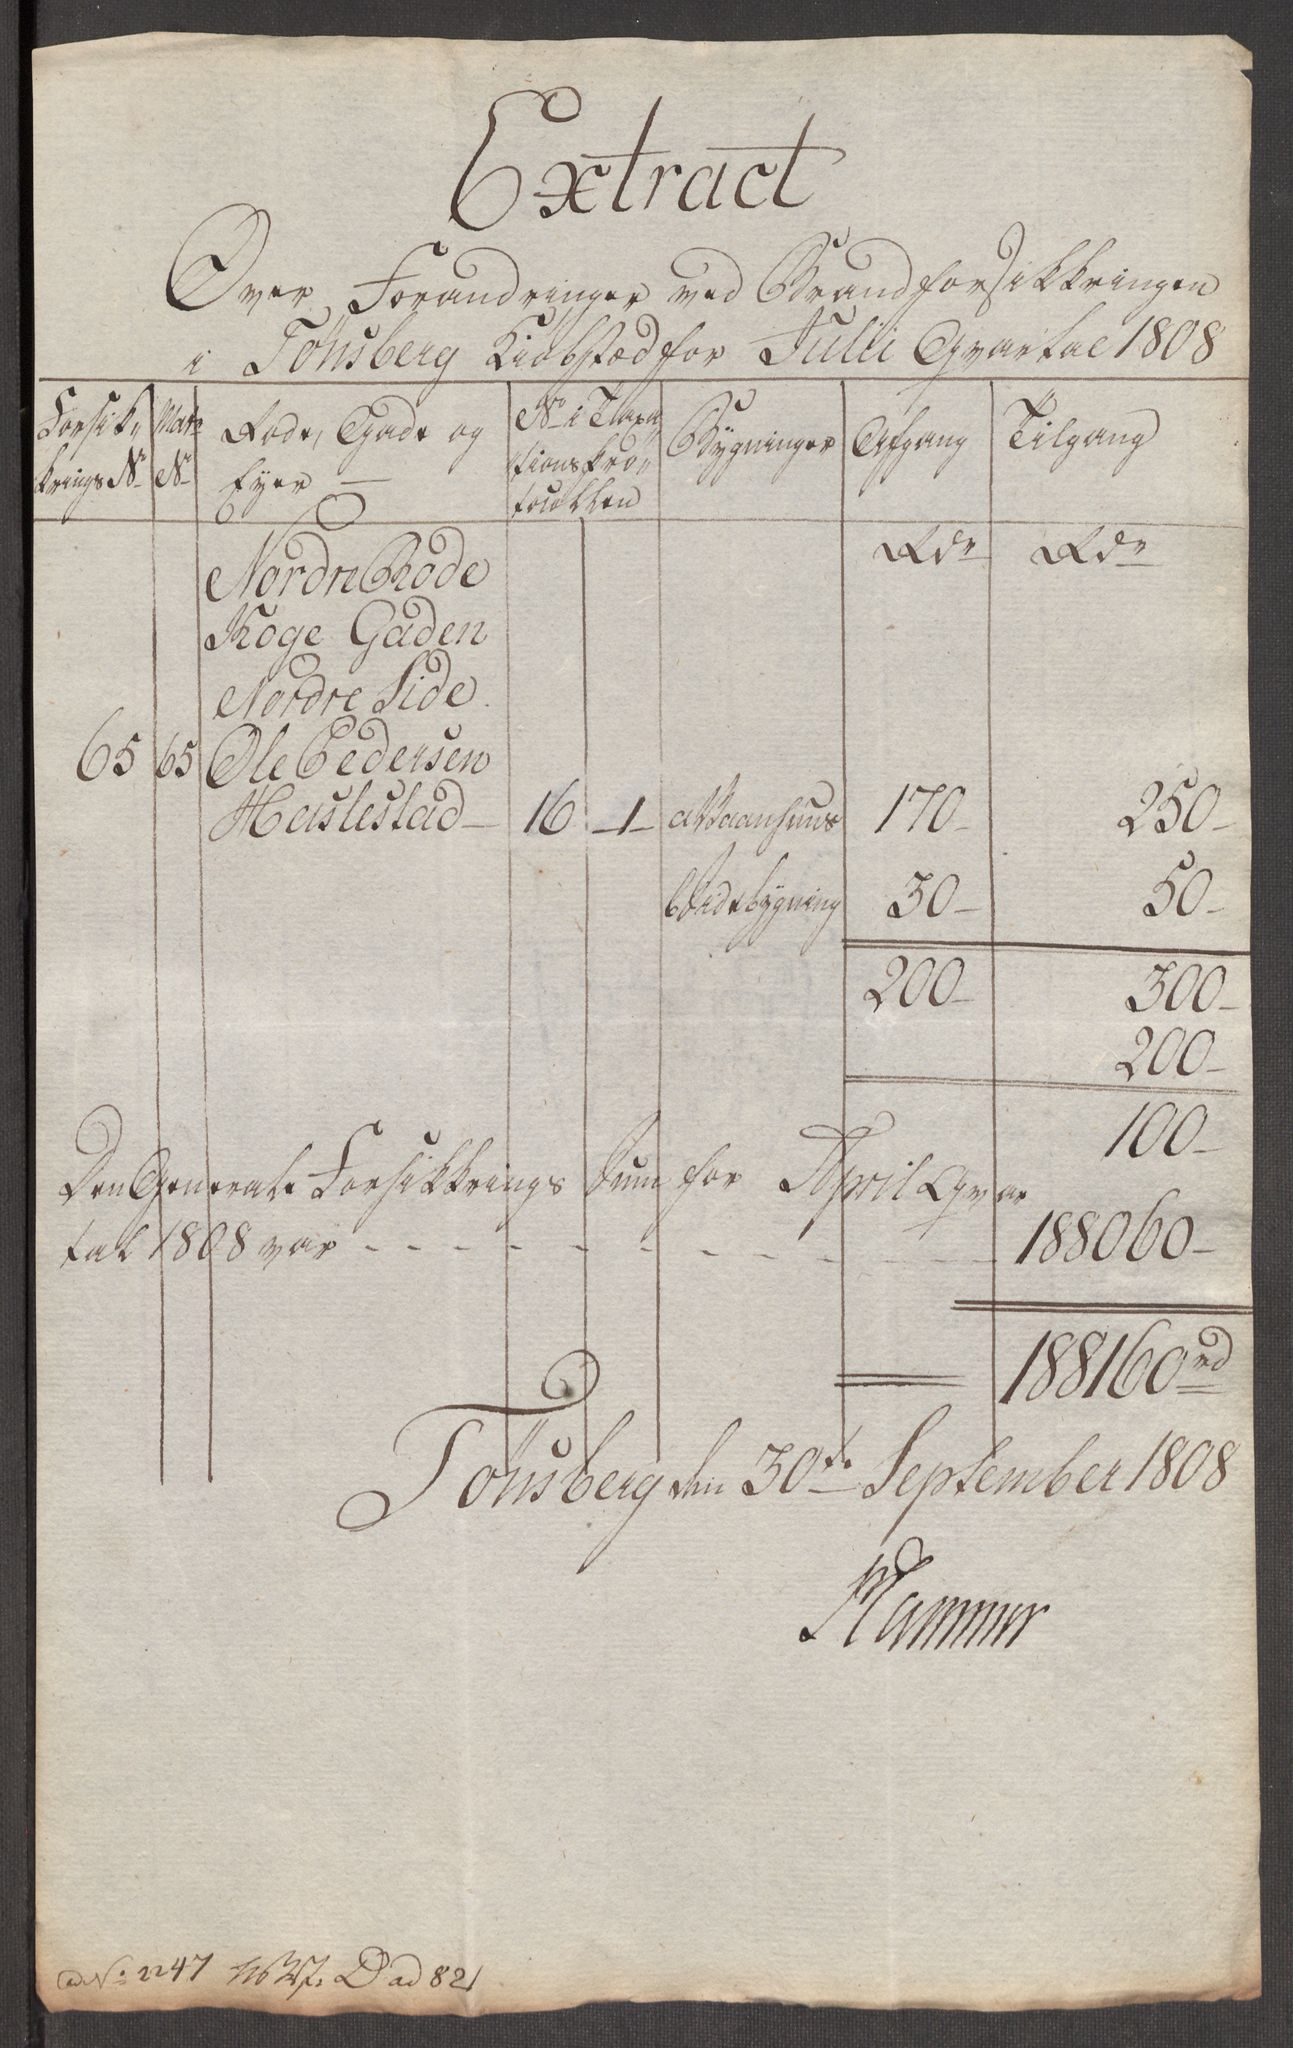 Extract
Over Forandringer ved Brandforsikkringen
i Tönsberg Kiöbsted for Julii Qvartal 1808
Forsik„ Matr Rode, Gade og No i Taxa„ Bygninger Afgang Tilgang
krings No No Eyer — tions Pro„
tocollen
Rdr Rdr
Nordre Rode
Koge Gaden
Nordre Side
65 65 Ole Pedersen
Haslestad — 16 -1- a Vaanhuus 170 - 250 -
b Sidebygning 30 - 50 -
200 - 300 -
200 -
100 -
Den Generale Forsikkrings Sum for April Qvar
tal 1808 var - - - - - - - - - 188060 -
188160 rd
Tönsberg den 30te September 1808
Hammer
ad No 2247 D ad 821